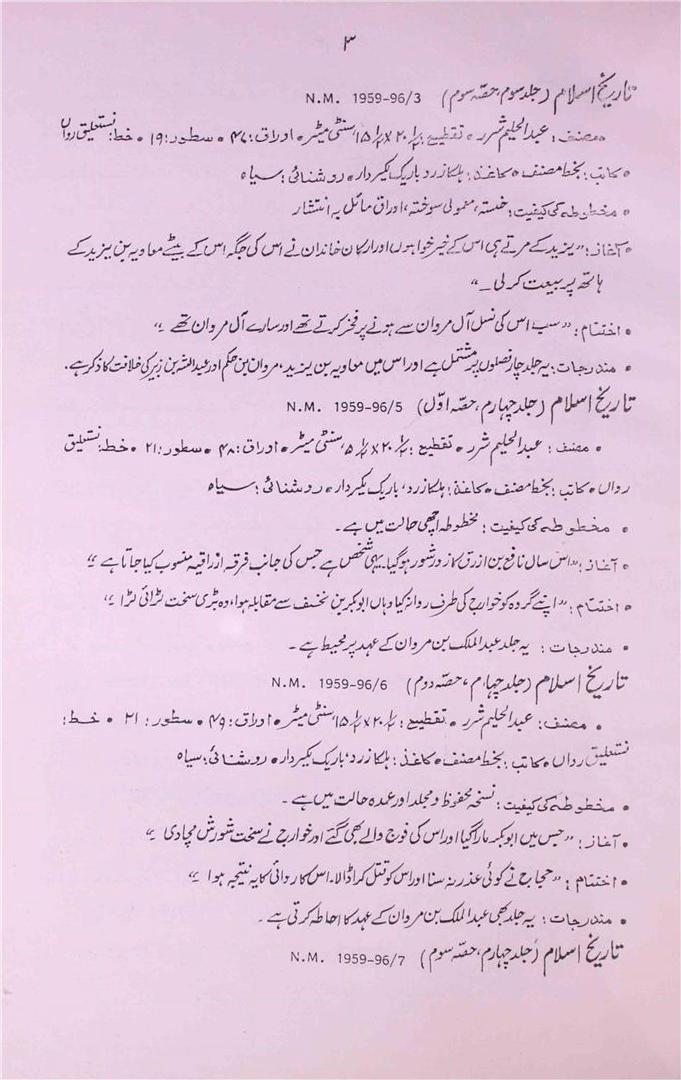 ۳
تاریخ اسلام (جلد سوم، حصّہ سوم) N.M. 1959-96/3
• مصنف: عبدالحلیم شرر • تقطیع: ۲۰½ x ۱۵½ سنٹی میٹر • اوراق: ۴۷ • سطور: ۱۹ • خط: نستعلیق رواں
• کاتب: بخط مصنف • کاغذ: ہلکا زرد باریک لکیردار • روشنائی: سیاہ
• مخطوطہ کی کیفیت: خستہ، معمولی سوختہ، اوراق مائل بہ انتشار
• آغاز: "یزید کے مرتے ہی اس کے خیر خواہوں اور ارکان خاندان نے اس کی جگہ اس کے بیٹے معاویہ بن یزید کے
ہاتھ پر بیعت کر لی ۔"
• اختتام: "سب اس کی نسل آل مروان سے ہونے پر فخر کرتے تھے اور سارے آل مروان تھے ۔"
• مندرجات: یہ جلد چار فصلوں پر مشتمل ہے اور اس میں معاویہ بن یزید، مروان بن حکم اور عبداللہ بن زبیر کی خلافت کا ذکر ہے۔
تاریخ اسلام (جلد چہارم، حصّہ اوّل) N.M. 1959-96/5
• مصنف: عبدالحلیم شرر • تقطیع: ۲۰½ x ۱۵½ سنٹی میٹر • اوراق: ۴۸ • سطور: ۲۱ • خط: نستعلیق
رواں • کاتب: بخط مصنف • کاغذ: ہلکا زرد، باریک لکیردار • روشنائی: سیاہ
• مخطوطہ کی کیفیت: مخطوطہ اچھی حالت میں ہے ۔
• آغاز: "اس سال نافع بن ازرق کا زور شور ہو گیا۔ یہی شخص ہے جس کی جانب فرقہ ازراقیہ منسوب کیا جاتا ہے ۔"
• اختتام: "اپنے گروہ کو خوارج کی طرف روانہ کیا وہاں ابوبکر بن مخنف سے مقابلہ ہوا، وہ بڑی سخت لڑائی لڑا ۔"
• مندرجات: یہ جلد عبدالملک بن مروان کے عہد پر محیط ہے ۔
تاریخ اسلام (جلد چہارم، حصّہ دوم) N.M. 1959-96/6
• مصنف: عبدالحلیم شرر • تقطیع: ۲۰½ x ۱۵½ سنٹی میٹر • اوراق: ۴۹ • سطور: ۲۱ • خط:
نستعلیق رواں • کاتب: بخط مصنف • کاغذ: ہلکا زرد، باریک لکیردار • روشنائی: سیاہ
• مخطوطہ کی کیفیت: نسخہ محفوظ و مجلد اور عمدہ حالت میں ہے ۔
• آغاز: "جس میں ابوبکر مارا گیا اور اس کی فوج والے بھی گئے اور خوارج نے سخت شورش مچا دی ۔"
• اختتام: "حجاج نے کوئی عذر نہ سنا اور اس کو قتل کرا ڈالا۔ اس کاروائی کا یہ نتیجہ ہوا ۔"
• مندرجات: یہ جلد بھی عبدالملک بن مروان کے عہد کا احاطہ کرتی ہے ۔
تاریخ اسلام (جلد چہارم، حصّہ سوم) N.M. 1959-96/7